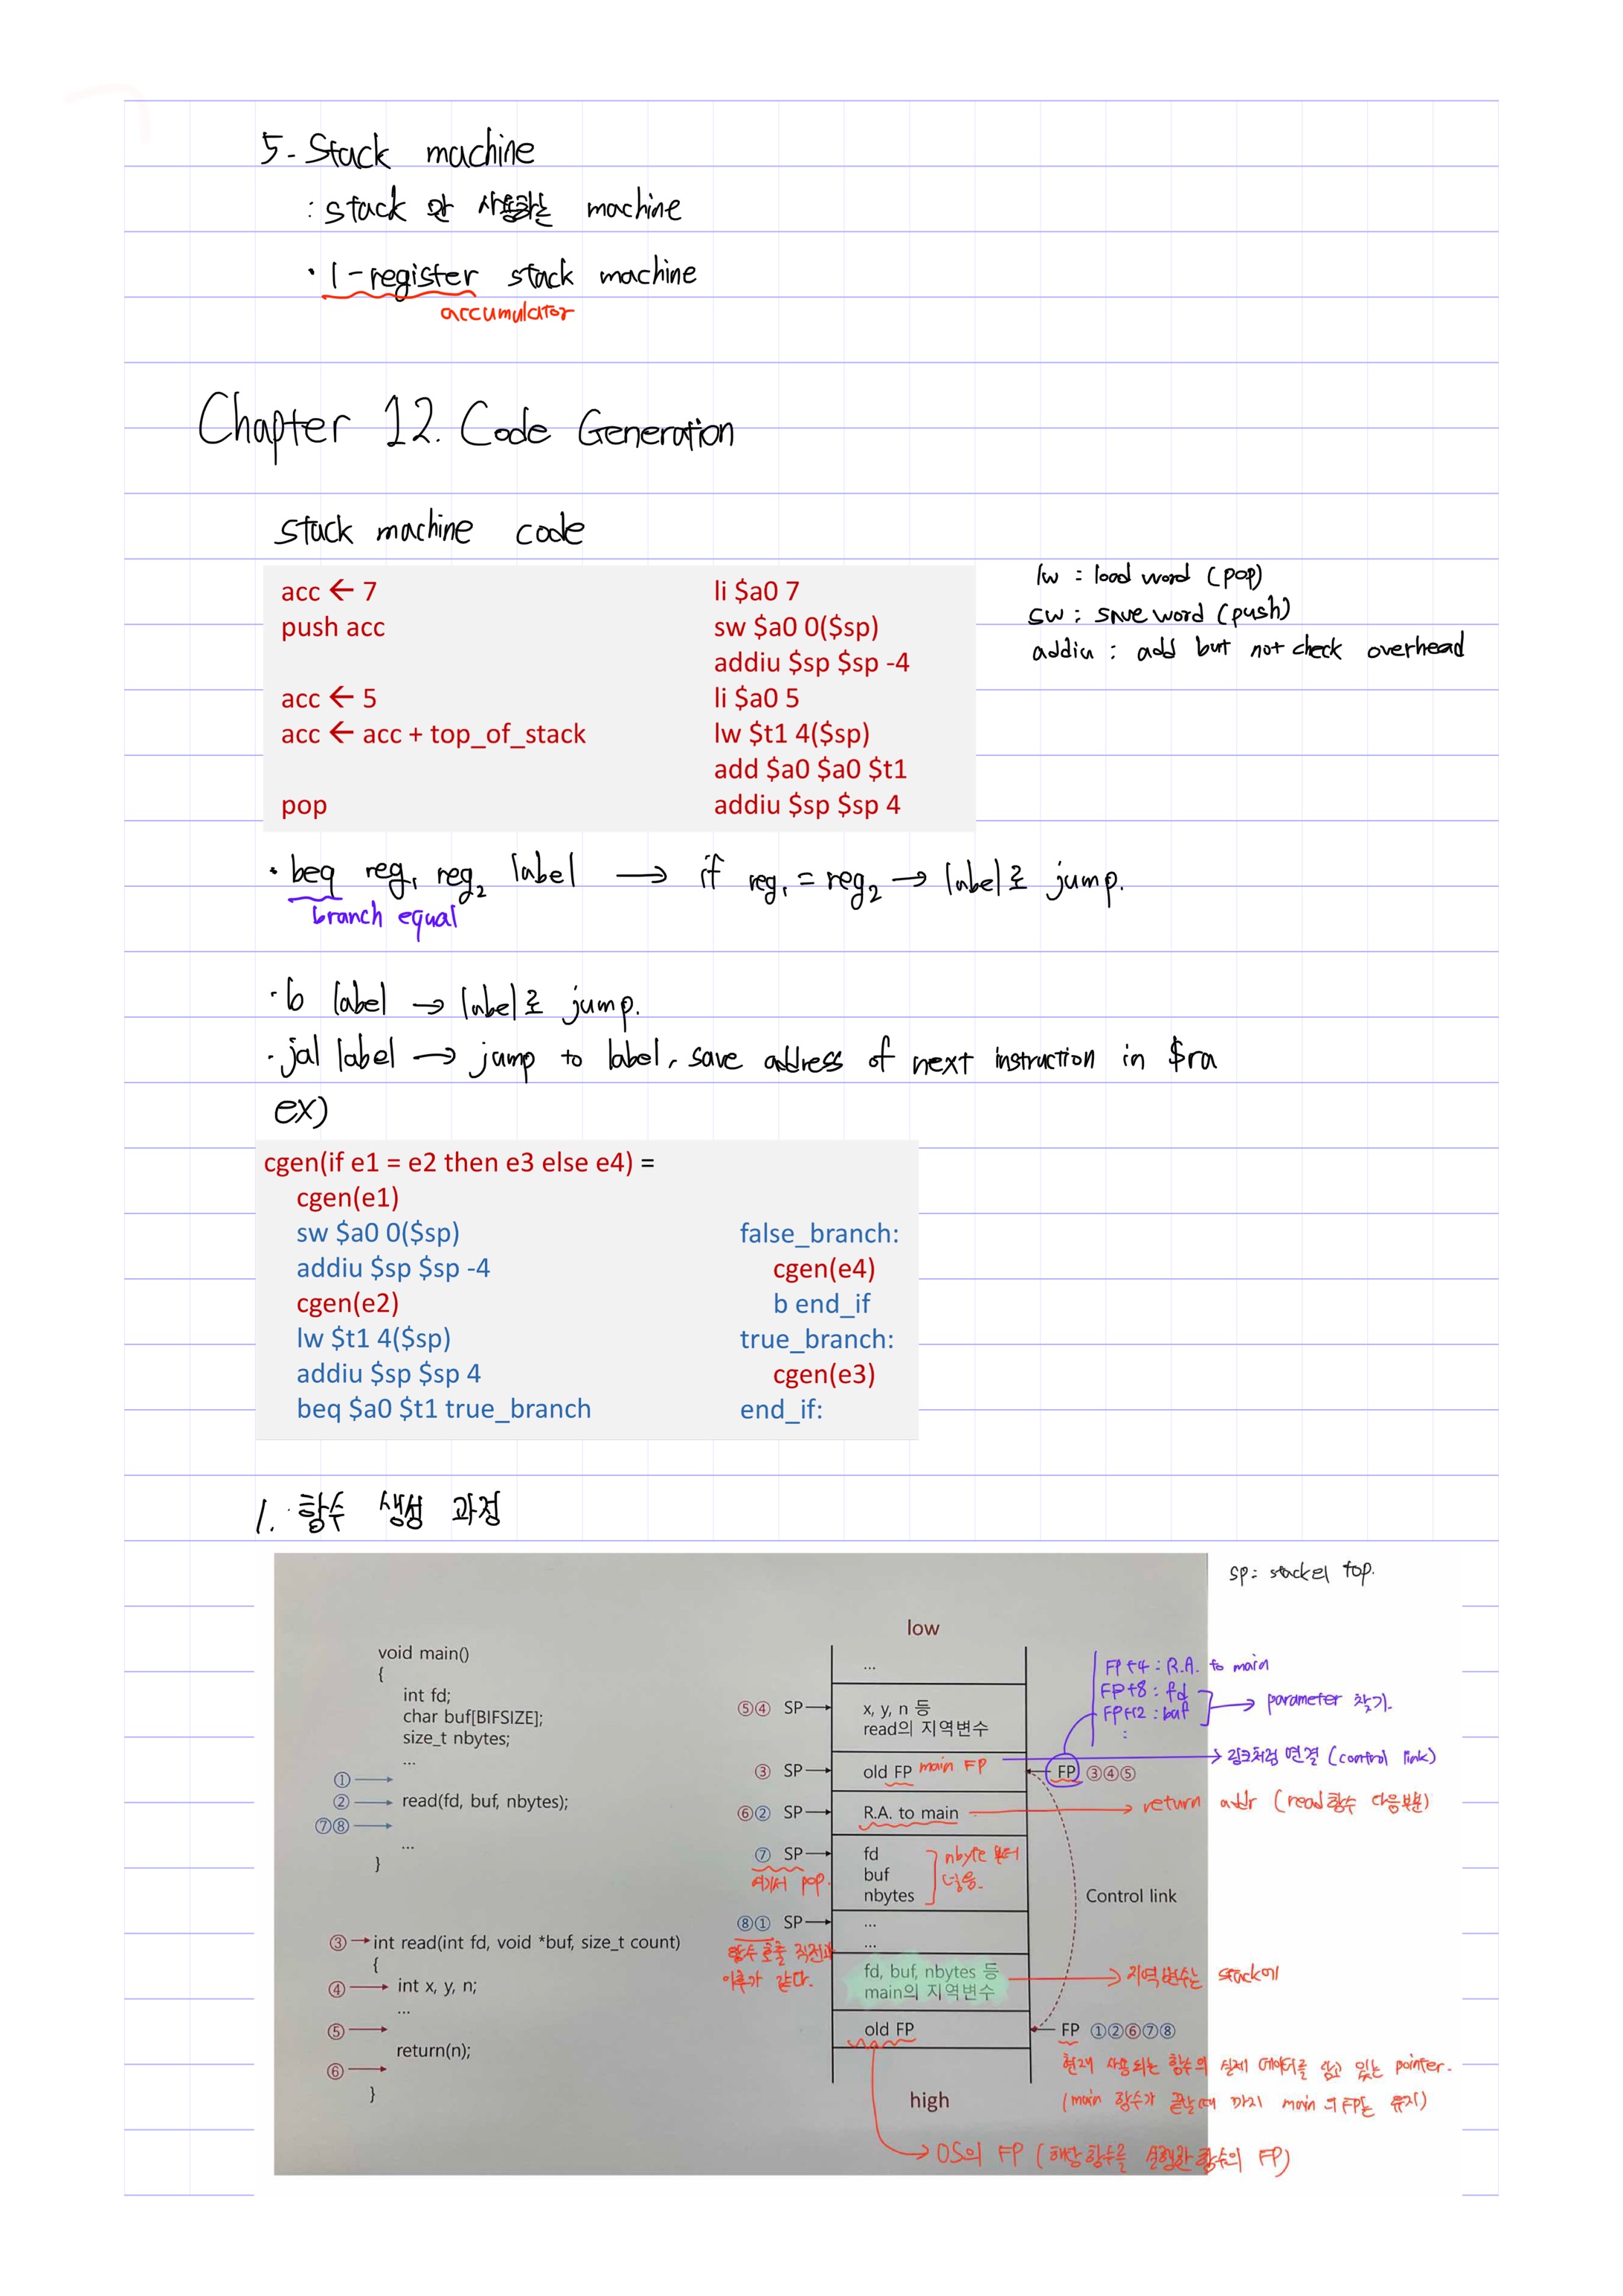 5- Stack machine
: stack 만 사용하는 machine
• 1-register stack machine
accumulator
Chapter 12. Code Generation
stack machine code
acc ← 7 li $a0 7
push acc sw $a0 0($sp)
addiu $sp $sp -4
acc ← 5 li $a0 5
acc ← acc + top_of_stack lw $t1 4($sp)
add $a0 $a0 $t1
pop addiu $sp $sp 4
lw : load word (pop)
sw : save word (push)
addiu : add but not check overhead
• beq reg1 reg2 label → if reg1 = reg2 → label로 jump.
branch equal
· b label → label로 jump.
· jal label → jump to label, save address of next instruction in $ra
ex)
cgen(if e1 = e2 then e3 else e4) =
cgen(e1)
sw $a0 0($sp)
addiu $sp $sp -4
cgen(e2)
lw $t1 4($sp)
addiu $sp $sp 4
beq $a0 $t1 true_branch
false_branch:
cgen(e4)
b end_if
true_branch:
cgen(e3)
end_if:
1. 함수 생성 과정
sp: stack의 top.
void main()
{
int fd;
char buf[BIFSIZE];
size_t nbytes;
...
① →
② → read(fd, buf, nbytes);
⑦⑧ →
...
}
③ → int read(int fd, void *buf, size_t count)
{
④ → int x, y, n;
...
⑤ →
return(n);
⑥ →
}
low
...
⑤④ SP → x, y, n 등
read의 지역변수
③ SP → old FP main FP ← FP ③④⑤
⑥② SP → R.A. to main
⑦ SP → fd
buf
nbytes
여기서 pop.
nbyte 부터
넣음.
⑧① SP → ...
...
함수 호출 직전과
이후가 같다.
fd, buf, nbytes 등
main의 지역변수
old FP ← FP ①②⑥⑦⑧
high
Control link
FP+4 : R.A. to main
FP+8 : fd
FP+12 : buf
:
→ parameter 찾기.
→ 링크처럼 연결 (control link)
→ return addr (read함수 다음부분)
→ 지역변수는 stack에
현재 사용되는 함수의 실제 데이터를 담고 있는 pointer.
(main 함수가 끝날때 까지 main의 FP는 유지)
→ OS의 FP (해당함수를 실행한 함수의 FP)